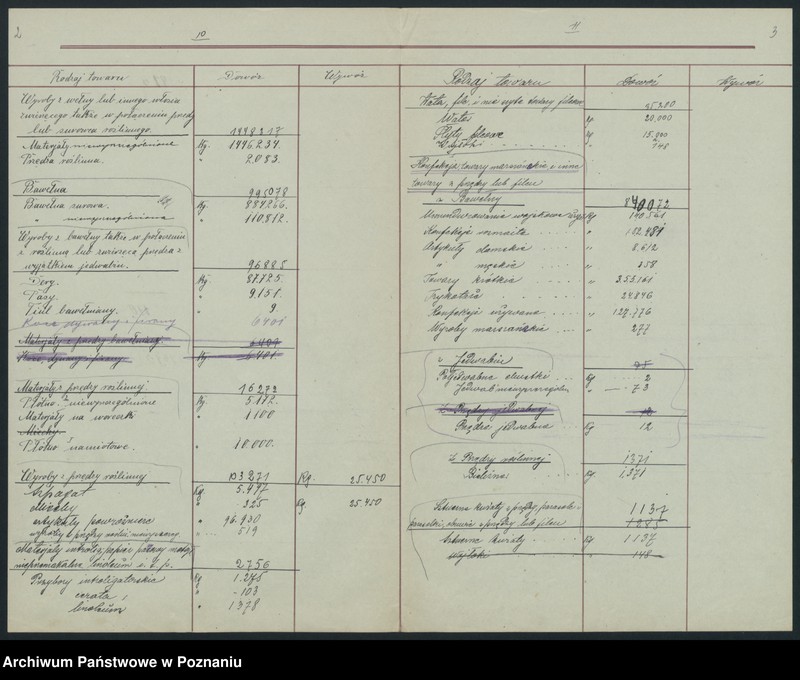 2
10
Rodzaj towaru Dowóz Wywóz
Wyroby z wełny lub innego włosia
zwierzęcego także w połączeniu przędzy
lub surowca roślinnego. 1498317
Materjały niewyszczególnione Kg. 1496234.
Przędza roślinna. " 2.083.
Bawełna 995078
Bawełna surowa. Kg. 884266.
" niewyszczególniona " 110.812.
Wyroby z bawełny także w połączeniu
z roślinną lub zwierzęcą przędzą z
wyjątkiem jedwabiu. 96885
Derg. Kg 87.725.
Pasy. " 9.151.
Tiul bawełniany. " 9.
Koce dywany i firany 6401
Materjały z przędzy bawełnianej 6401
Koce, dywany i firany Kg 6401
Materjały z przędzy roślinnej 16272
Płótno niewyszczególnione Kg. 5.172.
Materjały na woreczki " 1100
Miechy
Płótno namiotowe. " 10.000.
Wyroby z przędzy roślinnej 103271 Kg. 25.450
Szpagat Kg. 5.497
Miechy " 325 Kg 25.450
Artykuły powroźnicze " 96.930
wyroby z przędzy roślin. niewyszczeg. " 519
Materjały introlig. papier
nieprzemakalne linoleum i. t. p. 2756
Przybory introligatorskie Kg 1.275
cerata, " 103
linoleum " 1378
11
3
Rodzaj towaru Dowóz Wywóz
Wata, filc i nie szyte wyroby filcowe 35280
Wata Kg. 20.000
Płyty filcowe Kg 15.000
" 148
Konfekcja towary marszańskie i inne
towary z przędzy lub filcu
a. Bawełny 840072
Umundurowania wojskowe Kg 140561
Konfekcja rozmaita " 182.481
Artykuły damskie " 8.612
" męskie " 358
Towary krótkie " 353.161
Trykotaże " 24846
Konfekcja używana " 127.776
Wyroby marszańskie " 277
Jedwabiu 75
Półjedwabne chustki Kg 2
Jedwab niewyszczególn. " 73
Przędzy jedwabnej 12
Przędza jedwabna Kg 12
z Przędzy roślinnej 1371
Bielizna Kg. 1.371
Sztuczne kwiaty z przędzy, parasole
parasolki, obuwie z przędzy lub filcu 1137
1285
Sztuczne kwiaty Kg 1137
Wojłoki " 148
Archiwum Państwowe w Poznaniu